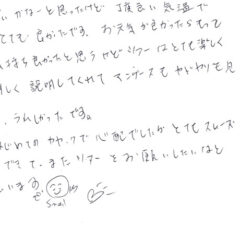 かなーと思ったけど 丁度良い気温で
とても良かたです。お天気が良かったらもって
持ち良かったと思うけどツアーはとても楽しく
しく説明してくれてマングースもヤドカリも見
、うれしかったです。
はじめてのカヤックで心配でしたがとてもスムーズ
できて、またツアーをお願いしたいなと
います